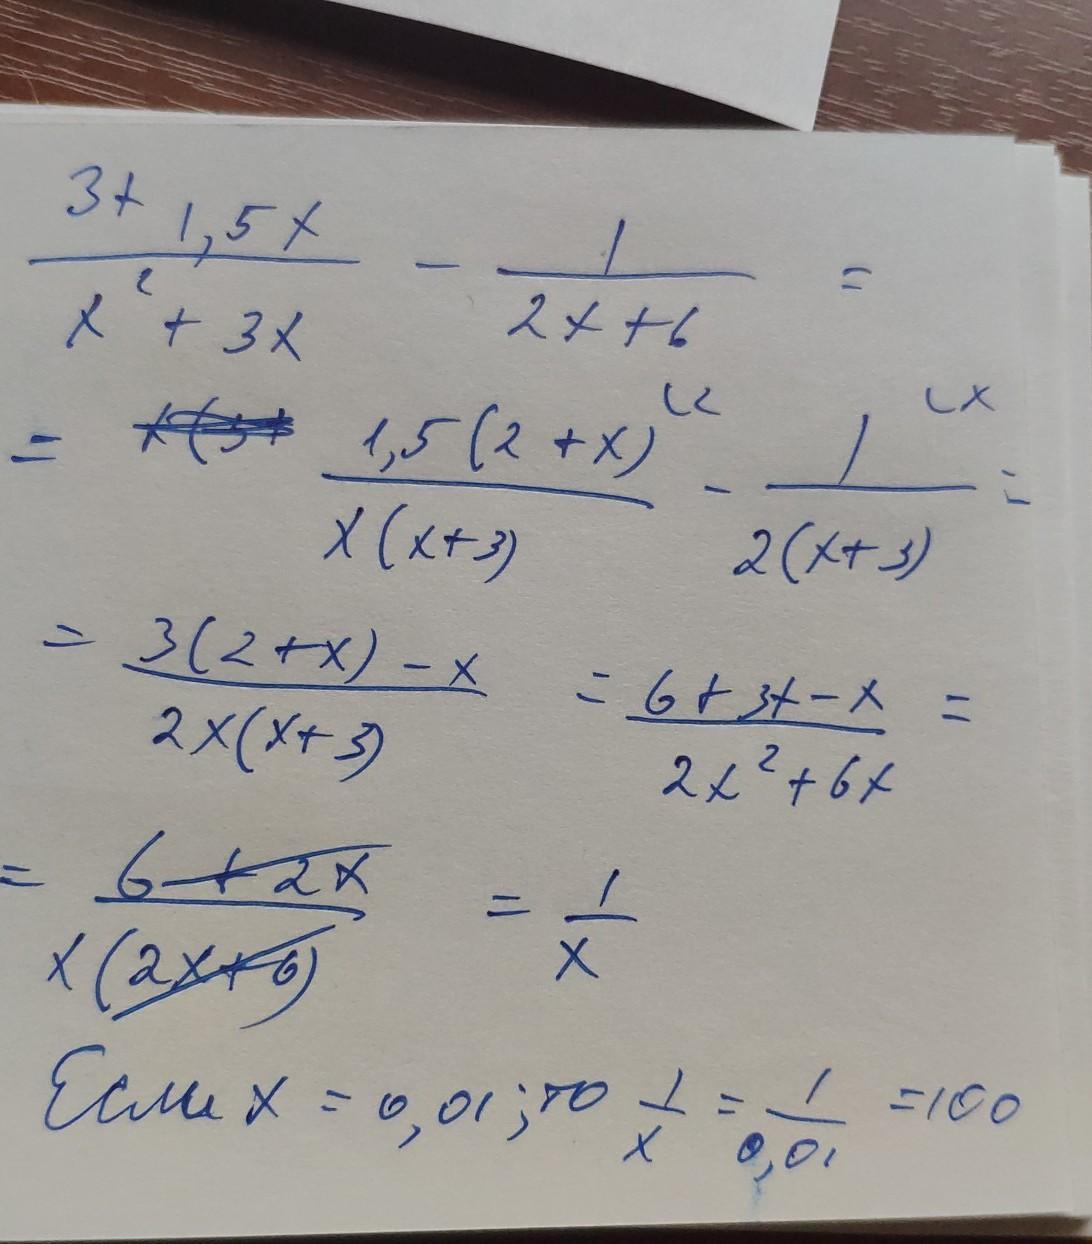 3+1,5x / x² + 3x - 1 / 2x+6 =
= 1,5(2+x) (2 / x(x+3) - 1 (x / 2(x+3) =
= 3(2+x)-x / 2x(x+3) = 6+3x-x / 2x²+6x =
= 6+2x / x(2x+6) = 1 / x
Если x = 0,01; то 1/x = 1/0,01 =100